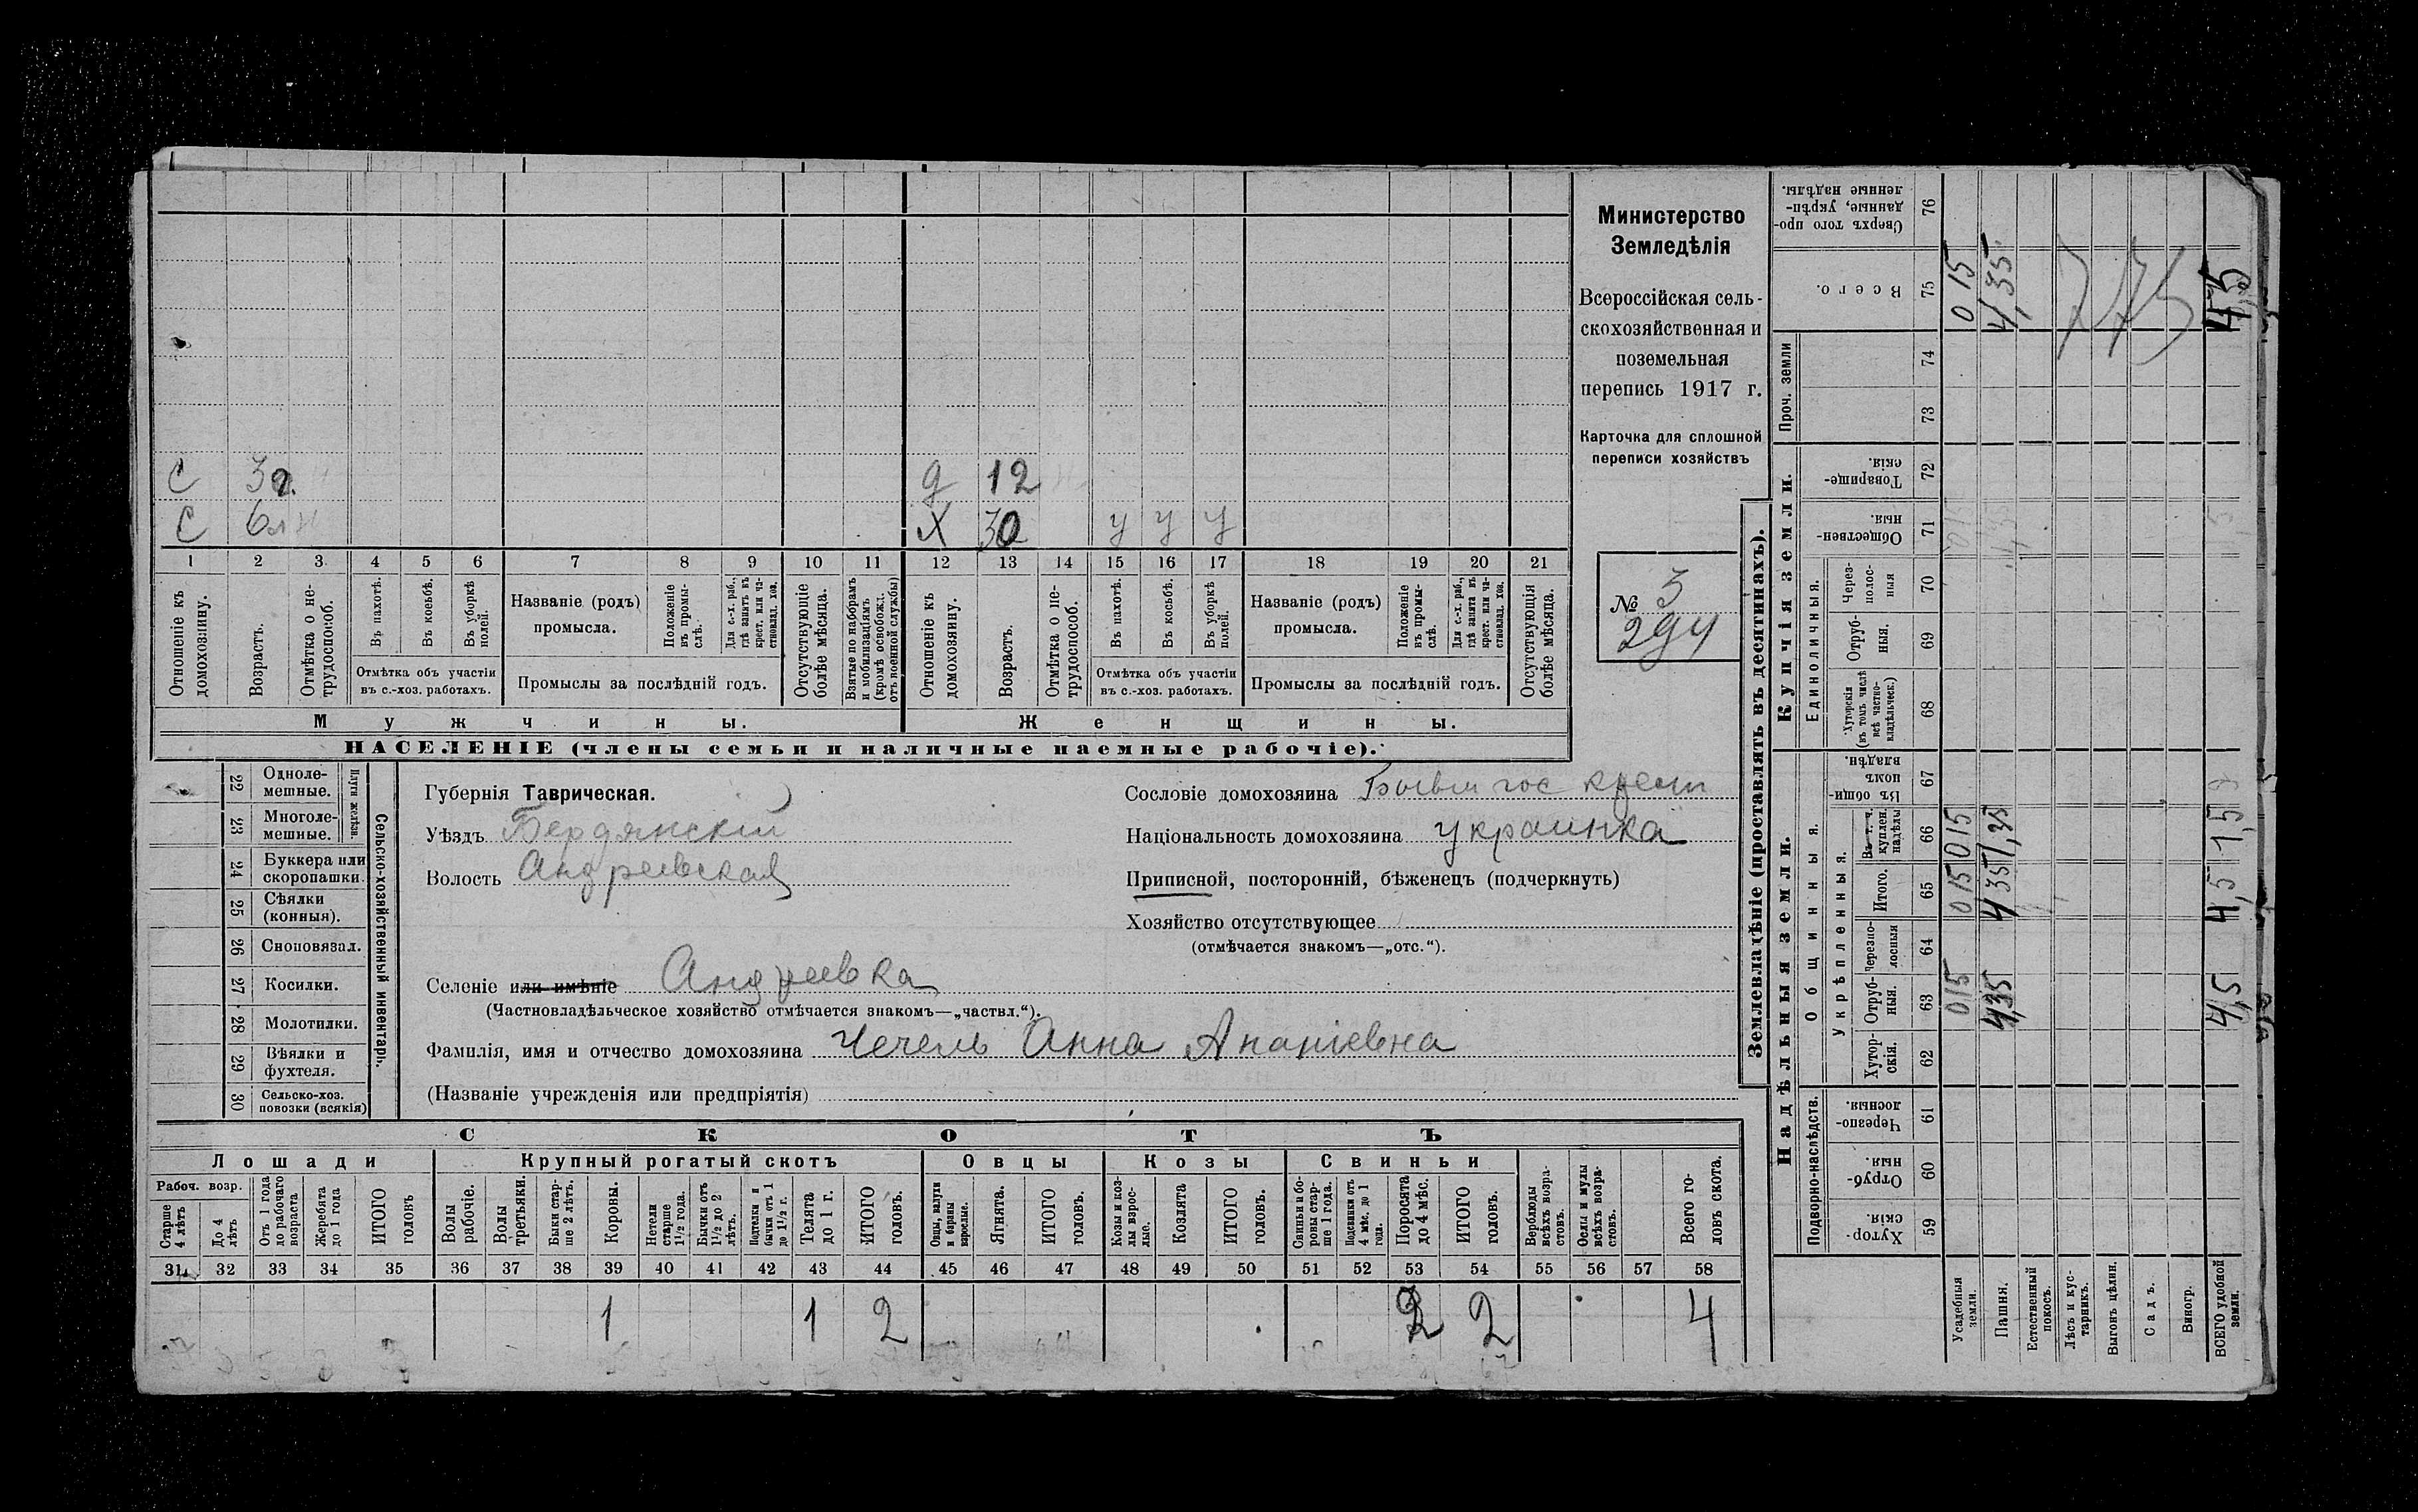 С 3 г. д 12
С 6 л Х 30 у у у
1 2 3 4 5 6 7 8 9 10 11 12 13 14 15 16 17 18 19 20 21
Отношеніе къ домохозяину.
Возрастъ.
Отмѣтка о не-трудоспособ.
Въ пахотѣ.
Въ косьбѣ.
Въ уборкѣ полей.
Отмѣтка объ участіи
въ с.-хоз. работахъ.
Названіе (родъ)
промысла.
Положеніе въ промы-слѣ.
Для с.-х. раб., гдѣ занятъ въ крест. или ча-стновлад. хоз.
Промыслы за послѣдній годъ.
Отсутствующіе болѣе мѣсяца.
Взятые по наборамъ и мобилизаціямъ (кромѣ освобожд. отъ военной службы)
Отношеніе къ домохозяину.
Возрастъ.
Отмѣтка о не-трудоспособ.
Въ пахотѣ.
Въ косьбѣ.
Въ уборкѣ полей.
Отмѣтка объ участіи
въ с.-хоз. работахъ.
Названіе (родъ)
промысла.
Положеніе въ промы-слѣ.
Для с.-х. раб., гдѣ занята въ крест. или ча-стновлад. хоз.
Промыслы за послѣдній годъ.
Отсутствующія болѣе мѣсяца.
Мужчины. Женщины.
НАСЕЛЕНІЕ (члены семьи и наличные наемные рабочіе).
Министерство
Земледѣлія
Всероссійская сель-
скохозяйственная и
поземельная
перепись 1917 г.
Карточка для сплошной
переписи хозяйствъ
№ 3
294
22 Одноле-мешные.
23 Многоле-мешные.
Плуги желѣзн.
24 Буккера или скоропашки.
25 Сѣялки (конныя).
26 Сноповязал.
27 Косилки.
28 Молотилки.
29 Вѣялки и фухтеля.
30 Сельско-хоз. повозки (всякія)
Сельско-хозяйственный инвентарь.
Губернія Таврическая.
Уѣздъ Бердянскій
Волость Андреевская
Сословіе домохозяина Бывш гос крест
Національность домохозяина украинка
Приписной, посторонній, бѣженецъ (подчеркнуть)
Хозяйство отсутствующее
(отмѣчается знакомъ—„отс.“).
Селеніе или имѣніе Андреевка
(Частновладѣльческое хозяйство отмѣчается знакомъ—„частвл.“).
Фамилія, имя и отчество домохозяина Чечель Анна Ананіевна
(Названіе учрежденія или предпріятія)
СКОТЪ
Лошади Крупный рогатый скотъ Овцы Козы Свиньи
Рабоч. возр.
Старше 4 лѣтъ
До 4 лѣтъ
Отъ 1 года до рабочаго возраста
Жеребята до 1 года
ИТОГО головъ
Волы рабочіе.
Волы третьяки.
Быки стар-ше 2 лѣтъ.
Коровы.
Нетели старше 1½ года.
Бычки отъ 1½ до 2 лѣтъ.
Подтелки и бычки отъ 1 до 1½ г.
Телята до 1 г.
ИТОГО головъ.
Овцы, валухи и бараны взрослые.
Ягнята.
ИТОГО головъ.
Козы и коз-лы взрос-лые.
Козлята
ИТОГО головъ.
Свиньи и бо-ровы стар-ше 1 года.
Подсвинки отъ 4 мѣс. до 1 года.
Поросята до 4 мѣс.
ИТОГО головъ.
Верблюды всѣхъ возра-стовъ.
Ослы и мулы всѣхъ возра-стовъ.
Всего го-ловъ скота.
31 32 33 34 35 36 37 38 39 40 41 42 43 44 45 46 47 48 49 50 51 52 53 54 55 56 57 58
1 1 2 2 2 4
Землевладѣніе (проставлять въ десятинахъ).
Надѣльныя земли. Купчія земли.
Проч. земли
Подворно-наслѣдств.
Общинныя.
Укрѣпленныя.
Единоличныя.
Хутор-скія. 59
Отруб-ныя. 60
Черезпо-лосныя. 61
Хутор-скія. 62
Отруб-ныя. 63 015 4,35 4,5
Черезпо-лосныя 64
Итого. 65 015 435 4,5
Въ т. ч. куплен. надѣлы 66 015 1,35 1,5
Въ общи-номъ владѣн. 67
Хуторскія (въ томъ числѣ всѣ частно-владѣльческ.) 68
Отруб-ныя. 69
Через-полос-ныя 70
Обществен-ныя. 71
Товарище-скія. 72
73
74
Всего. 75 015 4,35
Сверхъ того про-данные, укрѣп-ленные надѣлы. 76
Усадебныя земли.
Пашня.
Естественный покосъ.
Лѣсъ и кус-тарникъ.
Выгонъ цѣлин.
Садъ.
Виногр.
ВСЕГО удобной земли.